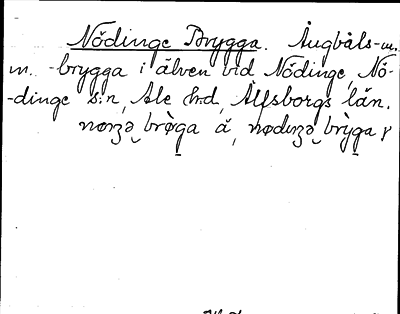 Nödinge Brygga. Ångbåts- m.
m. -brygga i älven vid Nödinge, Nö-
-dinge s:n, Ale hrd, Älfsborgs län.
brø̀ga å,